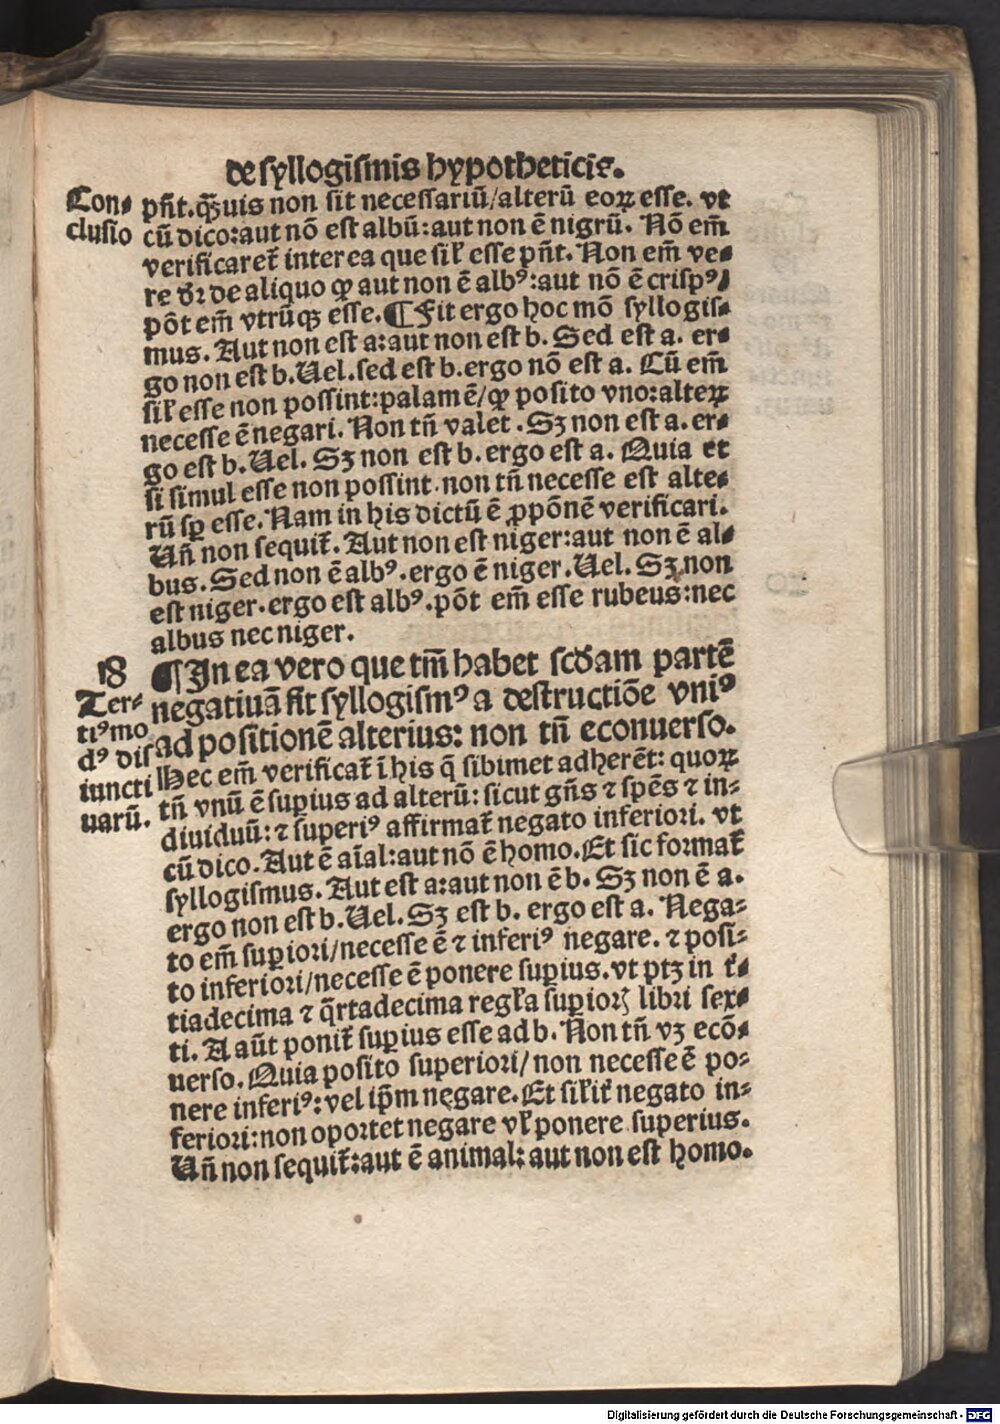 de syllogismis hypotheticis.
Con⸗
clusio
pn̄t. qᷓuis non sit necessariū/alterū eoꝝ esse. vt
cū dico: aut nō est albū: aut non ē nigrū. Nō em̄
verificaret̄ inter ea que sil̄ esse pn̄t. Non em̄ ve⸗
re dr̄ de aliquo ꝙ aut non ē albꝰ: aut nō ē crispꝰ/
pōt em̄ vtrūqꝫ esse. ¶ Fit ergo hoc mō syllogis⸗
mus. Aut non est a: aut non est b. Sed est a. er⸗
go non est b. Uel. sed est b. ergo nō est a. Cū em̄
sil̄ esse non possint: palam ē/ꝙ posito vno: alteꝝ
necesse ē negari. Non tn̄ valet. Sꝫ non est a. er⸗
go est b. Uel. Sꝫ non est b. ergo est a. Quia et
si simul esse non possint. non tn̄ necesse est alte⸗
rū sꝑ esse. Nam in his dictū ē ꝓpōnē verificari.
Un̄ non sequit̄. Aut non est niger: aut non ē al⸗
bus. Sed non ē albꝰ. ergo ē niger. Uel. Sꝫ non
est niger. ergo est albꝰ. pōt em̄ esse rubeus: nec
albus nec niger.
18
Ter⸗
tiꝰ mo
dꝰ dis
iuncti
uarū.
¶ In ea vero que tm̄ habet scd̄am partē
negatiuā fit syllogismꝰ a destructiōe vniꝰ
ad positionē alterius: non tn̄ econuerso.
Hec em̄ verificat̄ ī his q̄ sibimet adherēt: quoꝝ
tn̄ vnū ē suꝑius ad alterū: sicut gn̄s ⁊ spēs ⁊ in⸗
diuiduū: ⁊ superiꝰ affirmat̄ negato inferiori. vt
cū dico. Aut ē aīal: aut nō ē homo. Et sic format̄
syllogismus. Aut est a: aut non ē b. Sꝫ non ē a.
ergo non est b. Uel. Sꝫ est b. ergo est a. Nega⸗
to em̄ suꝑiori/necesse ē ⁊ inferiꝰ negare. ⁊ posi⸗
to inferiori/necesse ē ponere suꝑius. vt ptꝫ in t̄⸗
tiadecima ⁊ q̄rtadecima regl̄a suꝑioꝝ libri sex⸗
ti. A aūt ponit̄ suꝑius esse ad b. Non tn̄ vꝫ ecō⸗
uerso. Quia posito superiori/non necesse ē po⸗
nere inferiꝰ: vel ip̄m negare. Et sil̄it̄ negato in⸗
feriori: non oportet negare vl̄ ponere superius.
Un̄ non sequit̄: aut ē animal: aut non est homo.
Digitalisierung gefördert durch die Deutsche Forschungsgemeinschaft - DFG